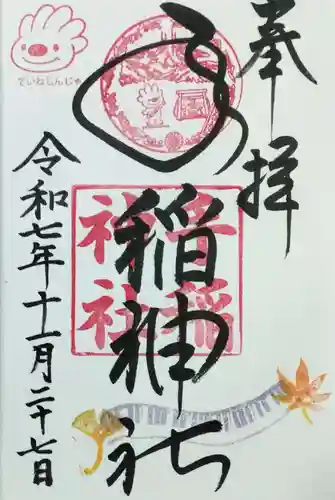 奉拝
手稲神社
手稲
神社
ていねじんじゃ
令和七年十一月二十七日